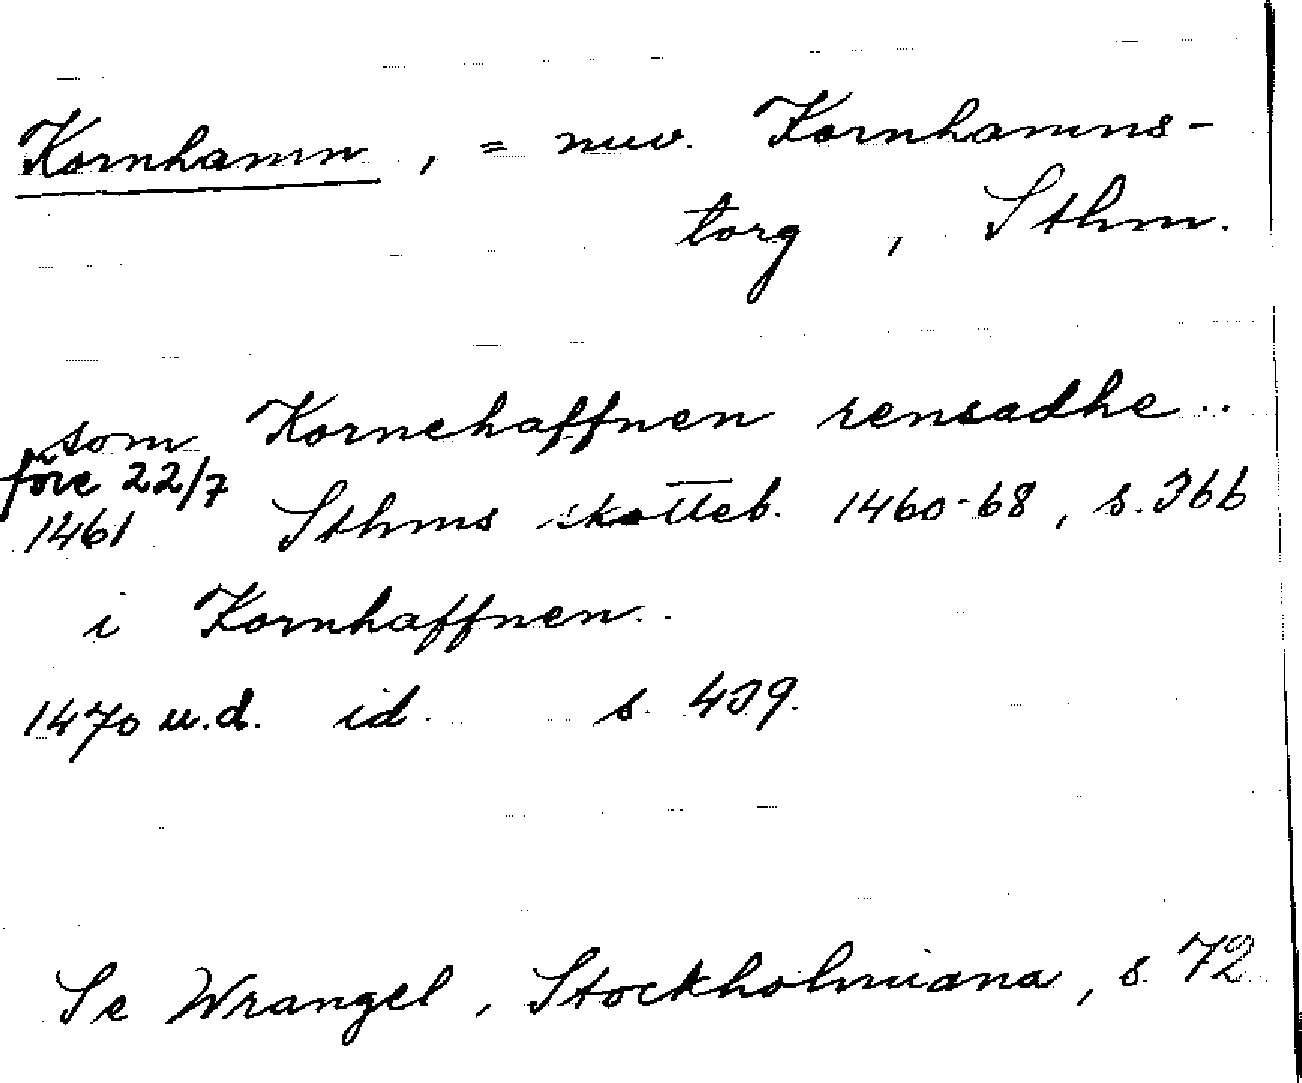 Kornhamn, = nuv. Kornhamns-
torg, Sthm.
som Kornehaffnen rensadhe..
före 22/7
1461 Sthms skotteb. 1460-68, s. 366
i Kornhaffnen.
1470 u.d. id. s. 439.
Se Wrangel, Stockholmiana, s. 72